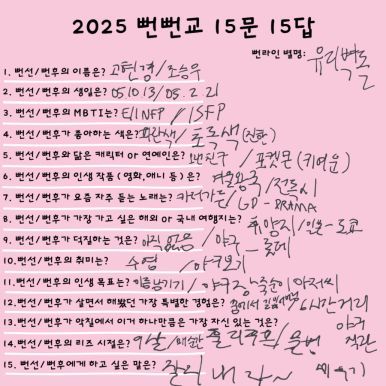 2025 뻔뻔교 15문 15답
뻔라인 별명: 유리벽돌
1. 뻔선/뻔후의 이름은? 고현경/조승우
2. 뻔선/뻔후의 생일은? 05.10.13/05.2.21
3. 뻔선/뻔후의 MBTI는? E/INFP / ISFP
4. 뻔선/뻔후가 좋아하는 색은? 파란색/초록색(진한)
5. 뻔선/뻔후와 닮은 캐릭터 or 연예인은? /포켓몬(귀여운)
6. 뻔선/뻔후의 인생 작품 (영화,애니 등)은? 겨울왕국/진격시
7. 뻔선/뻔후가 요즘 자주 듣는 노래는? /GD-DRAMA
8. 뻔선/뻔후가 가장 가고 싶은 해외 or 국내 여행지는? 휴양지/일본-도쿄
9. 뻔선/뻔후가 덕질하는 것은? 아직없음/야구-롯데
10. 뻔선/뻔후의 취미는? 수영/야구보기
11. 뻔선/뻔후의 인생 목표는? /야구장 아저씨
12. 뻔선/뻔후가 살면서 해봤던 가장 특별한 경험은? /6시간거리
13. 뻔선/뻔후가 악질에서 이거 하나만큼은 가장 자신 있는 것은? 야구
14. 뻔선/뻔후의 리즈 시절은? 9살/ 직관
15. 뻔선/뻔후에게 하고 싶은 말은? 잘 지내자~